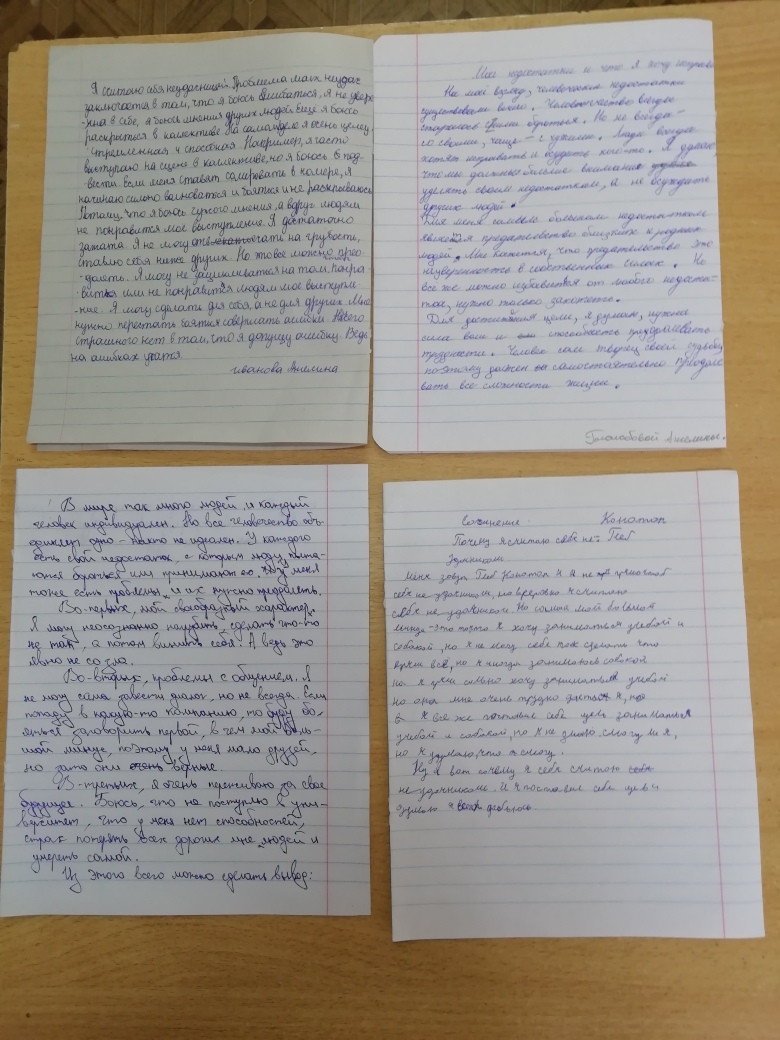 Я считаю себя неудачницей. Проблема моих неудач
заключается в том, что я боюсь ошибаться, я не увере-
-нна в себе, я боюсь мнения других людей. Ещё я боюсь
раскрыться в коллективе. На самом деле я очень целеу-
стремленная и способная. Например, я часто
выступаю на сцене в коллективе, но я боюсь под-
вести. Если меня ставят в номере, я
начинаю сильно волноваться и бояться и не раскрываюсь
Потому, что я боюсь чужого мнения, а вдруг людям
не понравится мое выступление. Я достаточно
зажата. Я не могу отвечать на грубость,
ставлю себя ниже других. Но это все можно прео-
-долеть. Я могу не зацикливаться на том, понра-
вится или не понравится людям мое выступле-
-ние. Я могу сделать для себя, а не для других. Мне
нужно перестать бояться совершать ошибки. Ничего
страшного нет в том, что я допущу ошибку. Ведь
на ошибках учатся.
Иванова Ангелина
Мои недостатки и что я хочу исправить
На мой взгляд, человеческие недостатки
существовали всегда. Человечество всегда
старалось с ними бороться. Но не всегда-
со своими, чаще - с чужими. Люди всегда
хотят и будут кого-то. Я думаю
что мы должны больше внимания
уделять своим недостаткам, а не осуждать
других людей.
Для меня самым большим недостатком
является предательство близких и родных
людей. Мне кажется, что предательство это
неуверенность в собственных силах. Но
все же можно избавиться от любого недостат-
ка, нужно только захотеть.
Для достижения цели, я думаю, нужна
сила воли и способность преодолевать
трудности. Человек сам творец своей судьбы,
поэтому должен самостоятельно преодоле
вать все сложности жизни.
Ангелины.
В мире так много людей, и каждый
человек индивидуален. Но все человечество объ-
единяет одно - никто не идеален. У каждого
есть свой недостаток, с которым люди пыта-
ются бороться или принимают его. У меня
тоже есть проблемы, и их нужно преодолеть.
Во-первых, мой своеобразный характер.
Я могу неосознанно нагрубить, сделать что-то
не так, а потом винить себя. А ведь это
явно не со зла.
Во-вторых, проблемы с общением. Я
не могу сама завести диалог, но не всегда. Если
попаду в какую-то компанию, то буду бо-
яться заговорить первой, в чем мой боль-
шой минус, поэтому у меня мало друзей,
но зато они очень верные.
В-третьих, я очень переживаю за свое
будущее. Боюсь, что не поступлю в уни-
верситет, что у меня нет способностей,
страх потерять всех дорогих мне людей и
умереть самой.
Из этого всего можно сделать вывод:
Сочинение. Конотоп
Почему я считаю себя не- Глеб
удачником
меня зовут Глеб Конотоп я
себя не удачником, но впервые я считаю
себя не удачником. Но самый мой большой
минус-это то что я хочу заниматься учебой и
собакой, но я не могу себя так сделать что
всё, но я иногда занимаюсь собакой
но я сильно хочу заниматься учебой
но она мне очень трудно дается
я все же поставлю себе цель заниматься
учебой и собакой, но я не знаю, смогу ли я,
но я думаю, что я смогу.
Ну и вот почему я себя считаю
не удачником. И я поставил себе цели
я добьюсь.